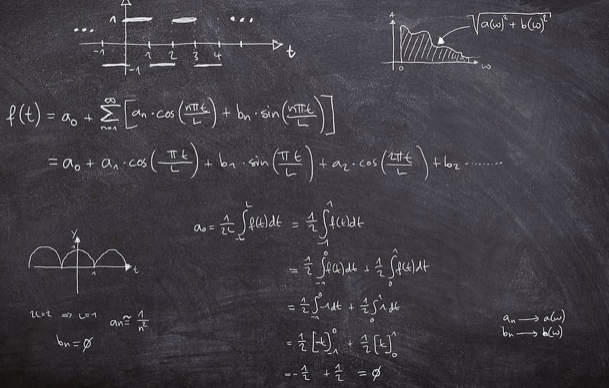 1 ... ...
-1 1 2 3 4 t
-1
A √(a(ω)² + b(ω)²)
0 ω
f(t) = a₀ + ∑ₙ₌₁^∞ [aₙ·cos(nπt/L) + bₙ·sin(nπt/L)]
= a₀ + a₁·cos(πt/L) + b₁·sin(πt/L) + a₂·cos(2πt/L) + b₂........
a₀ = 1/2L ∫₋L^L f(t)dt = 1/2 ∫₋₁^1 f(t)dt
= 1/2 ∫₋₁^0 f(t)dt + 1/2 ∫₀^1 f(t)dt
= 1/2 ∫₋₁^0 -1dt + 1/2 ∫₀^1 1dt
= 1/2 [-t]₋₁^0 + 1/2 [t]₀^1
= -1/2 + 1/2 = ∅
y
1 t
2L=2 ⇒ L=1 aₙ≅ 1/n²
bₙ=∅
aₙ → a(ω)
bₙ → b(ω)